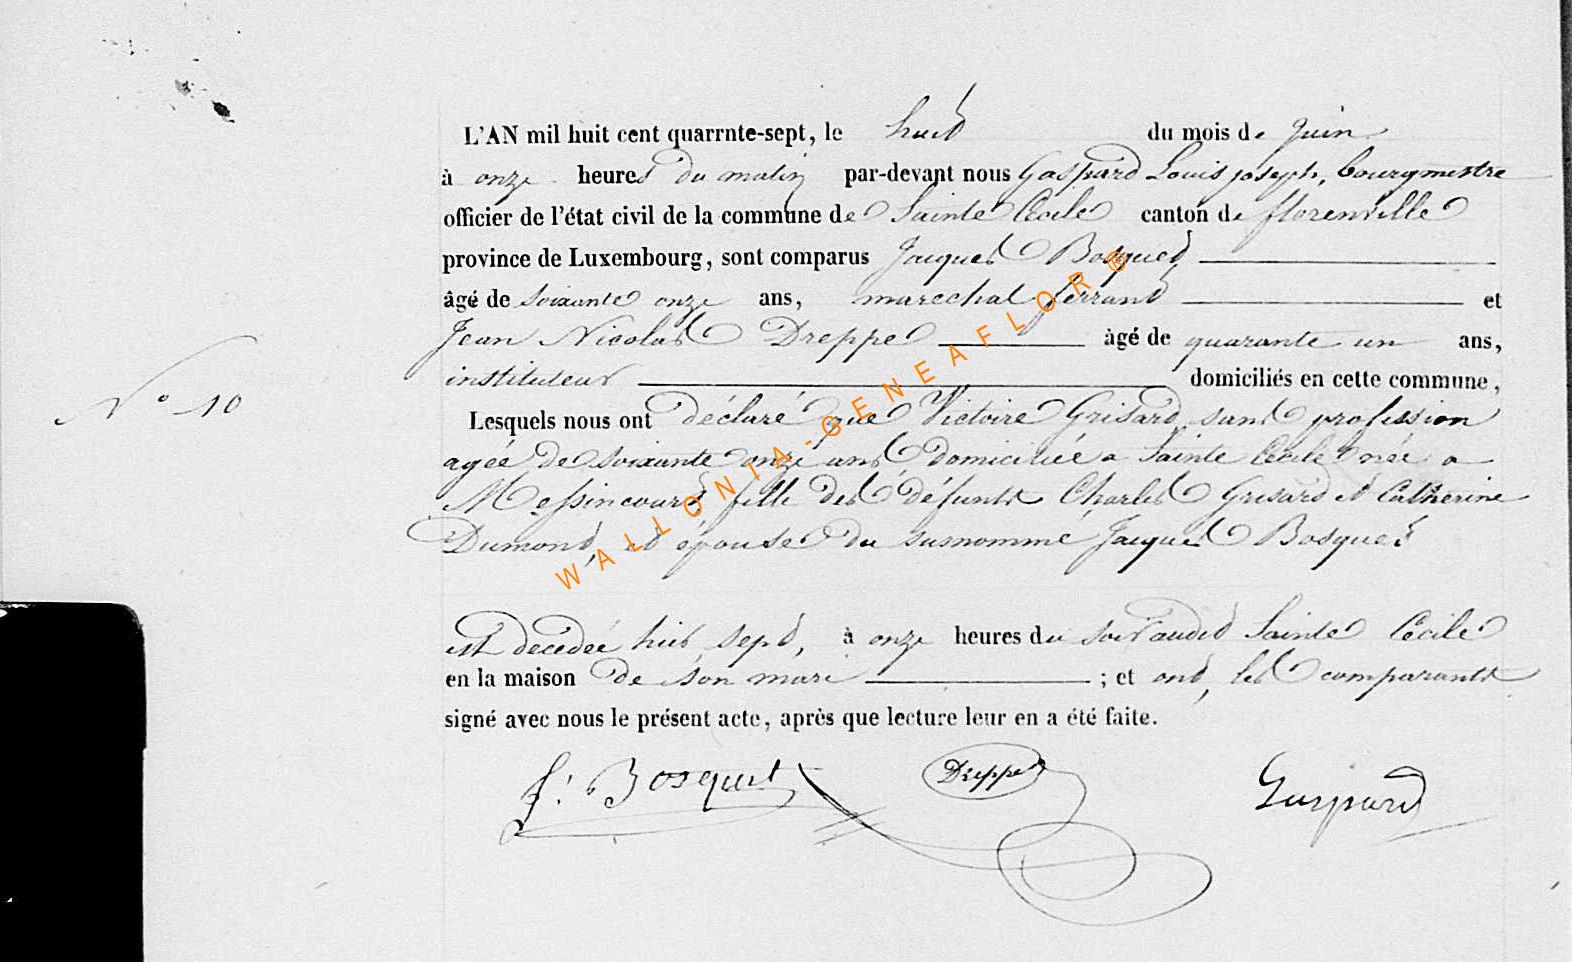 L'AN mil huit cent quarrnte-sept, le huit du mois de juin
à onze heures du matin par-devant nous Gaspard Louis joseph, bourgmestre
officier de l'état civil de la commune de Sainte Cécile canton de florenville
province de Luxembourg, sont comparus Jacques Bosquet
âgé de soixante onze ans, marechal ferrant et
Jean Nicolas Dreppe âgé de quarante un ans,
instituteur domiciliés en cette commune,
N° 10
Lesquels nous ont déclaré que Victoire Grisard sans profession
agée de soixante onze ans domiciliée a Sainte Cécile née a
Messincourt, fille des défunts Charles Grisard et Catherine
Dumont, et épouse du susnommé Jacques Bosquet
est décedée hier sept, à onze heures du soir audit Sainte Cécile
en la maison de son mari ; et ont, les comparants
signé avec nous le présent acte, après que lecture leur en a été faite.
J. Bosquet Dreppe Gaspard
WALLONIA-GENEAFLOR®